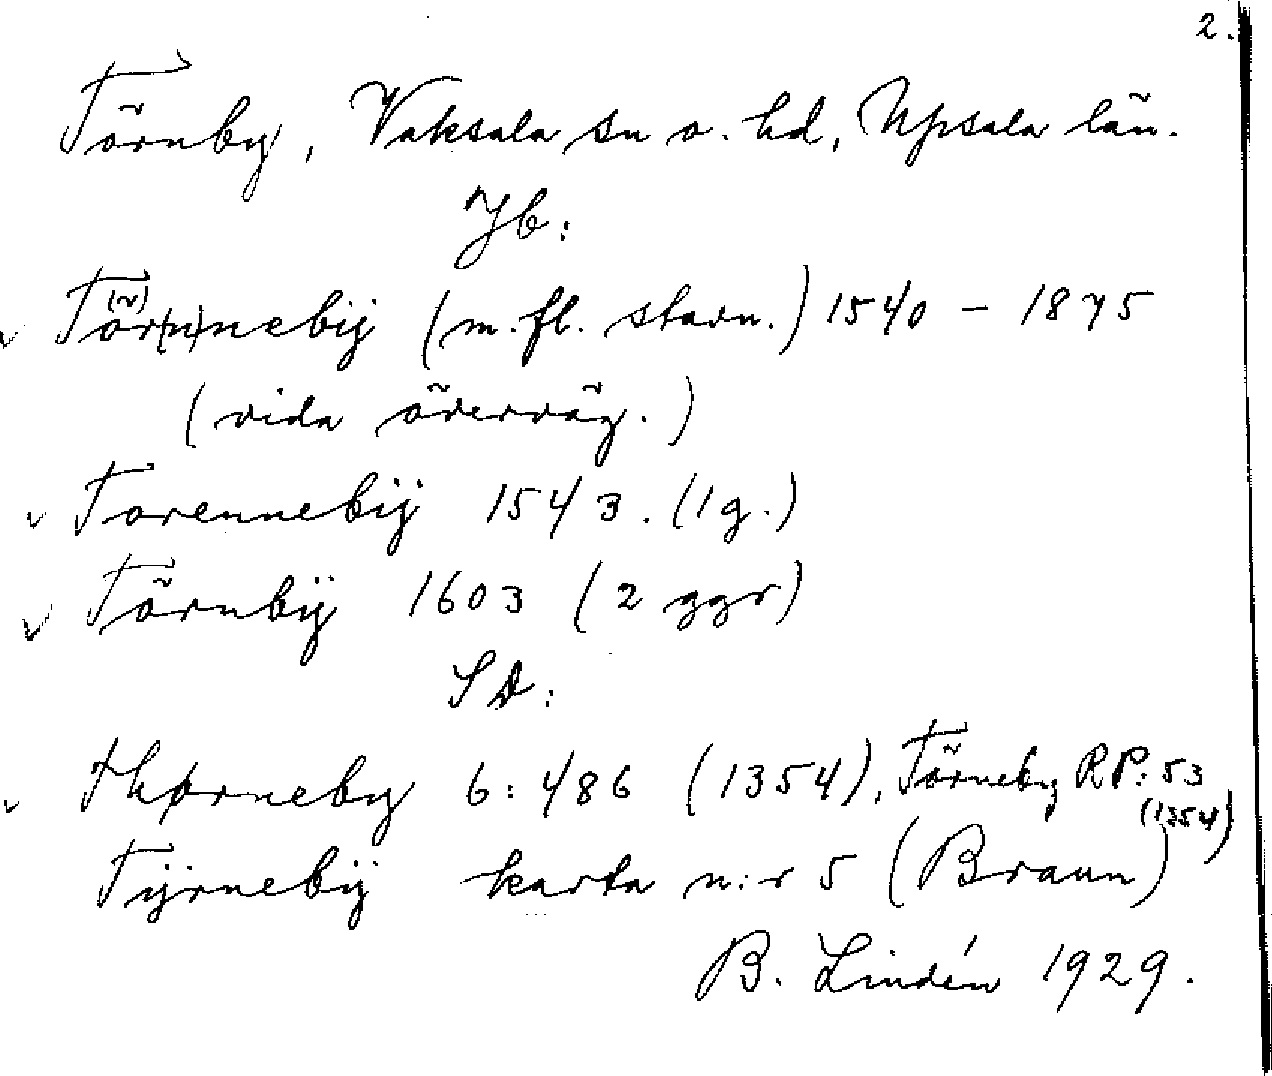 2.
Törnby, Vaksala sn o. hd, Upsala län.
Jb:
Tö(r)r(n)nebÿ (m. fl. stavn.) 1540 – 1875
(vida överväg.)
Torennebÿ 1543. (1 g.)
Törnbÿ 1603 (2 ggr)
SD:
Thørneby 6: 486 (1354), Törneby RP: 53
(1354)
Tÿrnebÿ karta n:r 5 (Braun)
B. Lindén 1929.